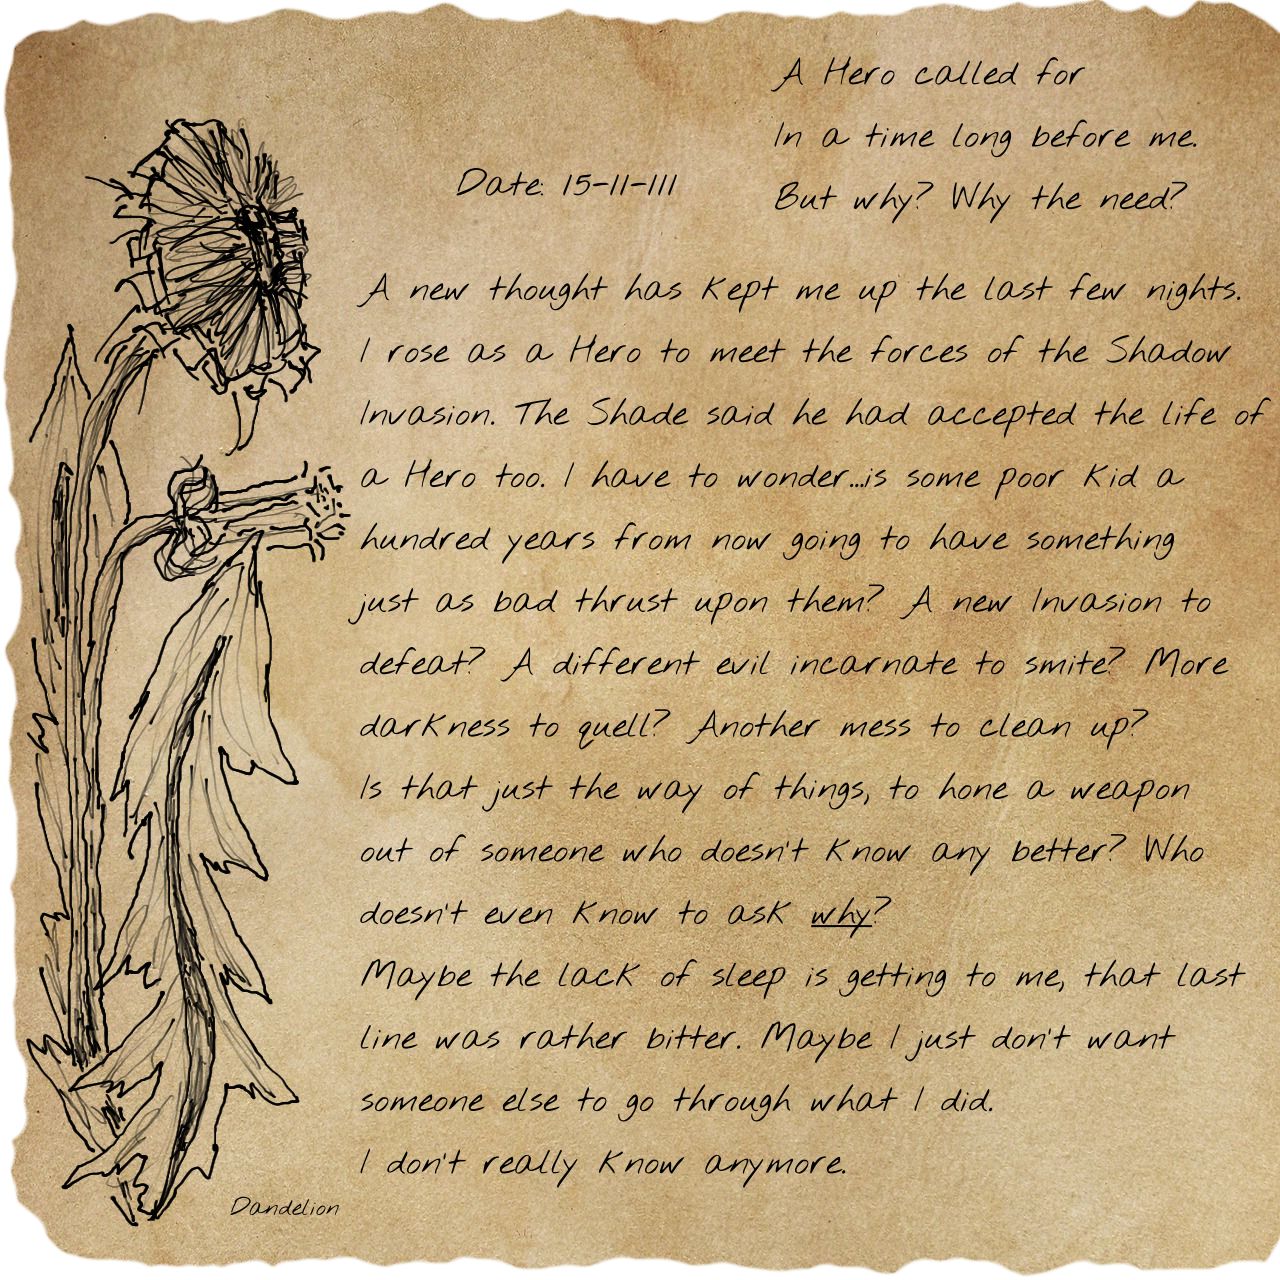 A Hero called for
In a time long before me.
Date: 15-11-111
But why? Why the need?
A new thought has kept me up the last few nights.
I rose as a Hero to meet the forces of the Shadow
Invasion. The Shade said he had accepted the life of
a Hero too. I have to wonder...is some poor kid a
hundred years from now going to have something
just as bad thrust upon them? A new Invasion to
defeat? A different evil incarnate to smite? More
darkness to quell? Another mess to clean up?
Is that just the way of things, to hone a weapon
out of someone who doesn't know any better? Who
doesn't even know to ask why?
Maybe the lack of sleep is getting to me, that last
line was rather bitter. Maybe I just don't want
someone else to go through what I did.
I don't really know anymore.
Dandelion